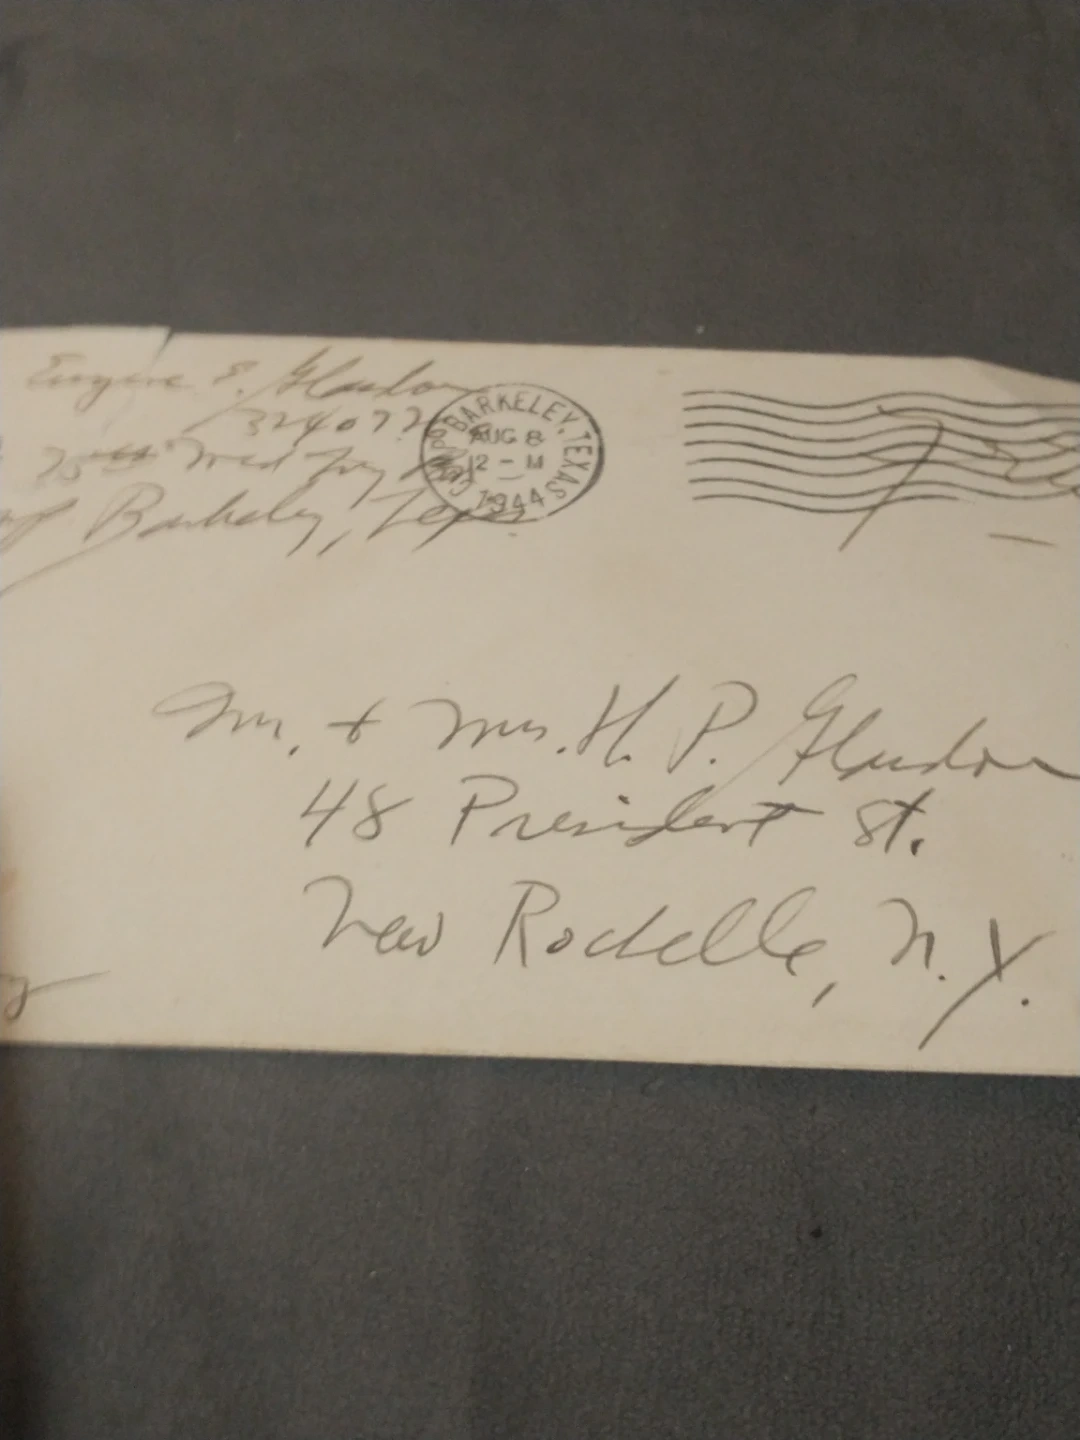 Eugene E.
324077
75th Med Trg
Barkeley, Texas
CAMP BARKELEY, TEXAS
AUG 8
12 - M
1944
Free
Mr. + Mrs. H. P.
48 President St.
New Rochelle, N.Y.